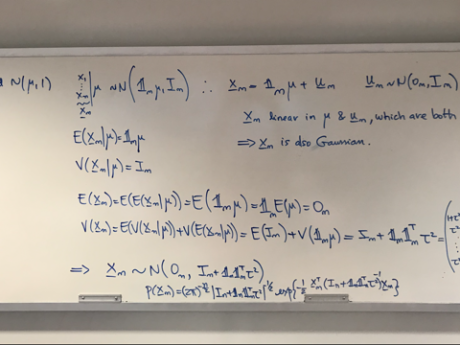 N(μ,1)
x₁ ⋮ xₘ | μ ~N(𝟙ₘμ, Iₘ) ∴ xₘ = 𝟙ₘμ + uₘ uₘ ~N(0ₘ, Iₘ)
xₘ
xₘ linear in μ & uₘ, which are both
E(xₘ|μ)=𝟙ₘμ ⇒ xₘ is also Gaussian.
V(xₘ|μ)=Iₘ
E(xₘ)=E(E(xₘ|μ))=E(𝟙ₘμ)=𝟙ₘE(μ)=0ₘ
V(xₘ)=E(V(xₘ|μ))+V(E(xₘ|μ))=E(Iₘ)+V(𝟙ₘμ)=Iₘ+𝟙ₘ𝟙ₘᵀτ²=
⇒ xₘ ~N(0ₘ, Iₘ+𝟙ₘ𝟙ₘᵀτ²)